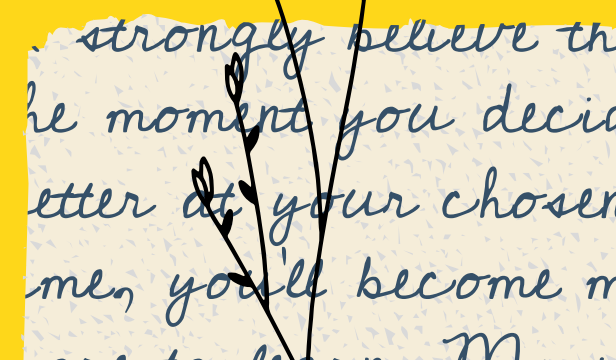 strongly believe th
he moment you decid
etter at your chosen
me, you'll become m